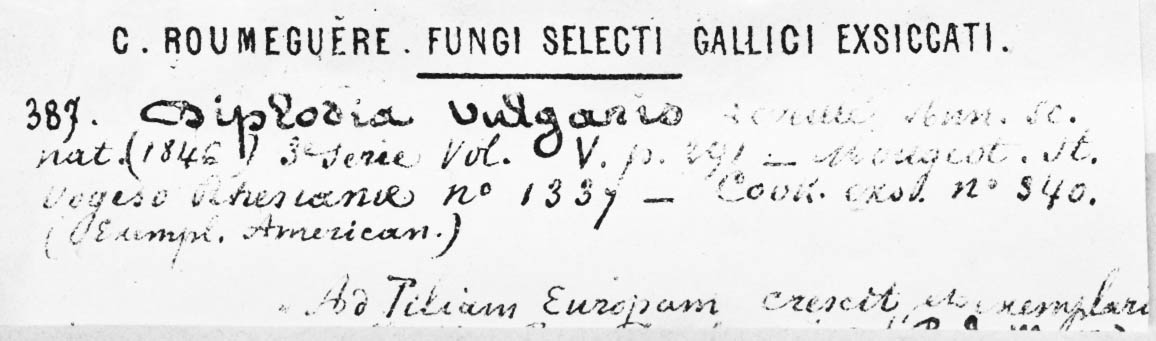 C. ROUMEGUÈRE. FUNGI SELECTI GALLICI EXSICCATI.
387. Diplodia vulgaris Leveillé, Ann. Sc.
nat. (1846) 3e Serie Vol. V. p. 291 — Mougeot. St.
Vogeso Rhenanæ no 1337 — Cook. exs. no 340.
(Exempl. American.)
Ad Tiliam Europam crescit,